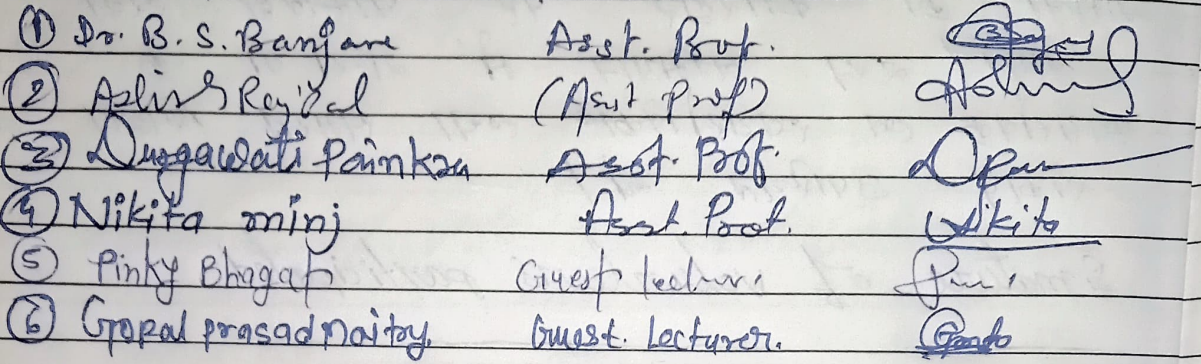 ① Dr. B. S. Banjare Asst. Prof.
② Ashish (Asst Prof)
③ Durgawati Painkra Asst. Prof. Dpain
④ Nikita minj Asst. Prof. Nikita
⑤ Pinky Bhagat Guest lecturer
⑥ Gopal prasad Guest. Lecturer.